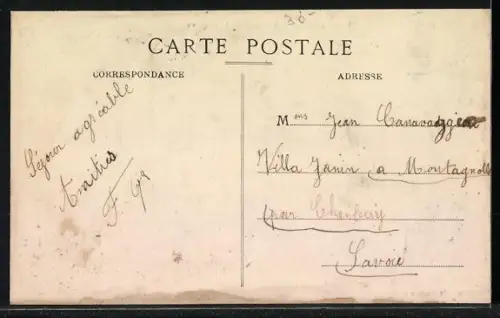 30-
CARTE POSTALE
CORRESPONDANCE
ADRESSE
Séjour agréable
Amitiés
F.
Mons Jean
Villa Janin a Montagnole
par Chambéry
Savoie